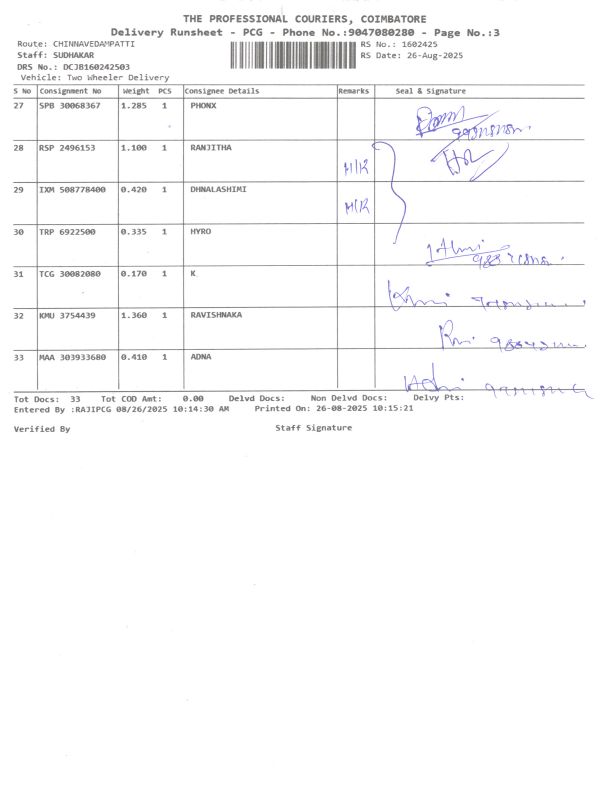 THE PROFESSIONAL COURIERS, COIMBATORE
Delivery Runsheet - PCG - Phone No.:9047080280 - Page No.:3
Route: CHINNAVEDAMPATTI RS No.: 1602425
Staff: SUDHAKAR RS Date: 26-Aug-2025
DRS No.: DCJB160242503
Vehicle: Two Wheeler Delivery
S No Consignment No Weight PCS Consignee Details Remarks Seal & Signature
27 SPB 30068367 1.285 1 PHONX
28 RSP 2496153 1.100 1 RANJITHA
29 IXM 508778400 0.420 1 DHNALASHIMI
30 TRP 6922500 0.335 1 HYRO
31 TCG 30082080 0.170 1 K
32 KMU 3754439 1.360 1 RAVISHNAKA
33 MAA 303933680 0.410 1 ADNA
Tot Docs: 33 Tot COD Amt: 0.00 Delvd Docs: Non Delvd Docs: Delvy Pts:
Entered By :RAJIPCG 08/26/2025 10:14:30 AM Printed On: 26-08-2025 10:15:21
Verified By Staff Signature